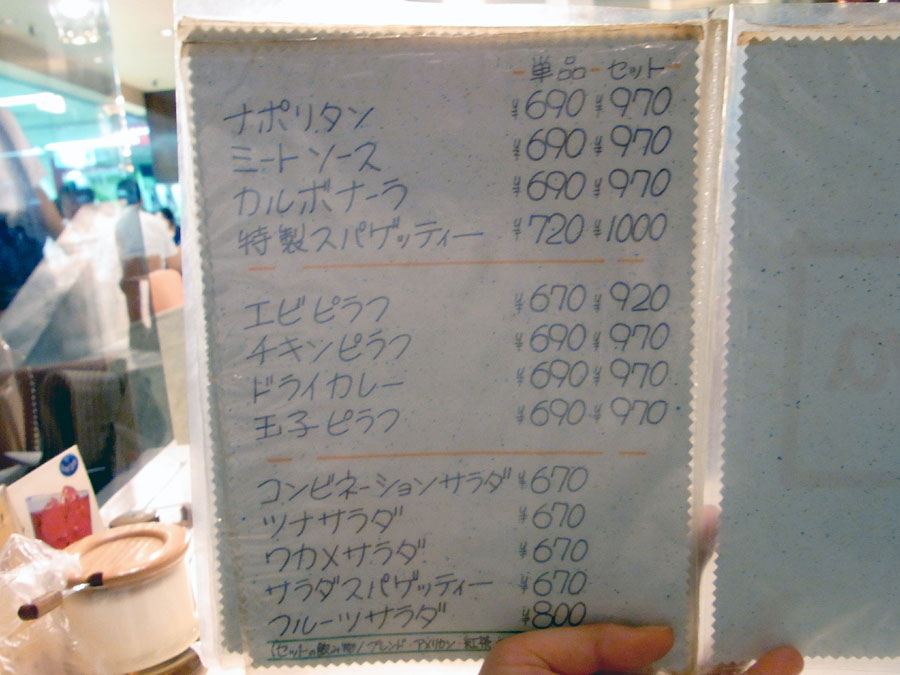 単品 セット
ナポリタン ¥690 ¥970
ミートソース ¥690 ¥970
カルボナーラ ¥690 ¥970
特製スパゲッティー ¥720 ¥1000
エビピラフ ¥670 ¥920
チキンピラフ ¥690 ¥970
ドライカレー ¥690 ¥970
玉子ピラフ ¥690 ¥970
コンビネーションサラダ ¥670
ツナサラダ ¥670
ワカメサラダ ¥670
サラダスパゲッティー ¥670
フルーツサラダ ¥800
(セットの飲み物/ブレンド・アメリカン・紅茶